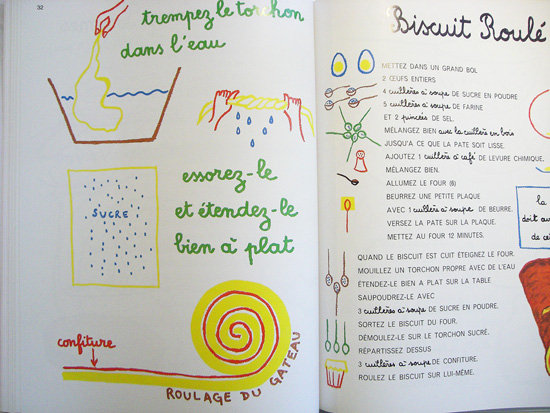 32
trempez le torchon
dans l'eau
essorez-le
et étendez-le
bien à plat
SUCRE
confiture
ROULAGE DU GATEAU
Biscuit Roulé
METTEZ DANS UN GRAND BOL
2 ŒUFS ENTIERS
4 cuillères à soupe DE SUCRE EN POUDRE
5 cuillères à soupe DE FARINE
ET 2 pincées DE SEL.
MÉLANGEZ BIEN avec la cuillère en bois
JUSQU'A CE QUE LA PATE SOIT LISSE.
AJOUTEZ 1 cuillère à café DE LEVURE CHIMIQUE,
MÉLANGEZ BIEN.
ALLUMEZ LE FOUR (6)
BEURREZ UNE PETITE PLAQUE
AVEC 1 cuillère à soupe DE BEURRE.
VERSEZ LA PATE SUR LA PLAQUE.
METTEZ AU FOUR 12 MINUTES.
QUAND LE BISCUIT EST CUIT ÉTEIGNEZ LE FOUR.
MOUILLEZ UN TORCHON PROPRE AVEC DE L'EAU
ÉTENDEZ-LE BIEN A PLAT SUR LA TABLE
SAUPOUDREZ-LE AVEC
3 cuillères à soupe DE SUCRE EN POUDRE.
SORTEZ LE BISCUIT DU FOUR.
DÉMOULEZ-LE SUR LE TORCHON SUCRÉ.
RÉPARTISSEZ DESSUS
3 cuillères à soupe DE CONFITURE.
ROULEZ LE BISCUIT SUR LUI-MÊME.
la
doit au
de ce